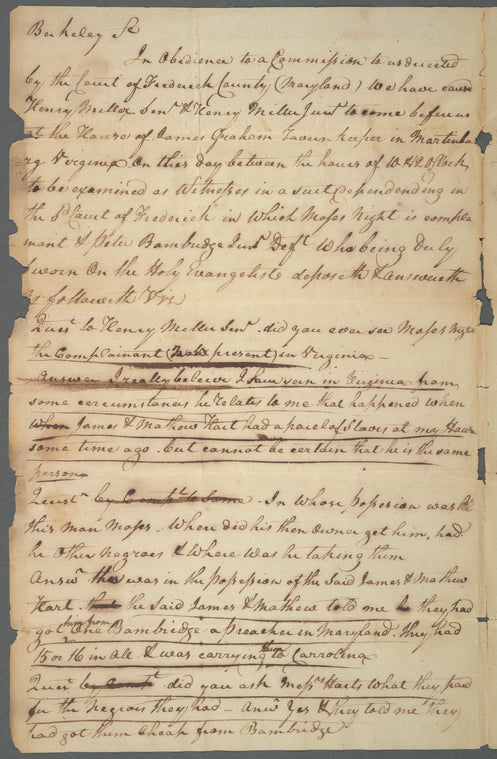 Berkeley Sc
In Obedience to a Commission to us directed
by the Court of Frederick County (Maryland) We have caus
Henry Miller Senr & Henry Miller Junr to come before us
at the House of James Graham Tavern keeper in Martinbu
rg Virginia On this day between the hours of 10 & 12 OClock
to be examined as Witnesses in a suit dependending in
the Sd Court of Frederick in Which Moses Night is compla
inant & Peter Bambridge Junr Deft Who being Duly
Sworn On the Holy Evangelists deposeth & answereth
as followeth Viz
Quesr to Henry Miller Senr did you ever see Moses Night
the Complainant (now present) in Virginia —
Answer I really believe I have seen in Virginia from
some circumstances he relates to me that happened when
when James & Mathew Hart had a parcel of Slaves at my House
some time ago. but cannot be certain that he is the same
person
Quest.n by Compt to Same - In Whose possesion was he
this man Moses - When did his then owner get him, had
he Other negroes & Where was he taking them
Answr was in the possession of the said James & Mathew
Hart - that the said James & Mathew told me they had
got him from One Bambridge a preacher in Maryland. they had
15 or 16 in all & was carrying them to Carrolina
Quesr by Compt did you ask Messrs Harts What they paid
for the Negroes they had - Answ Yes & they told me they
had got them cheap from Bambridge